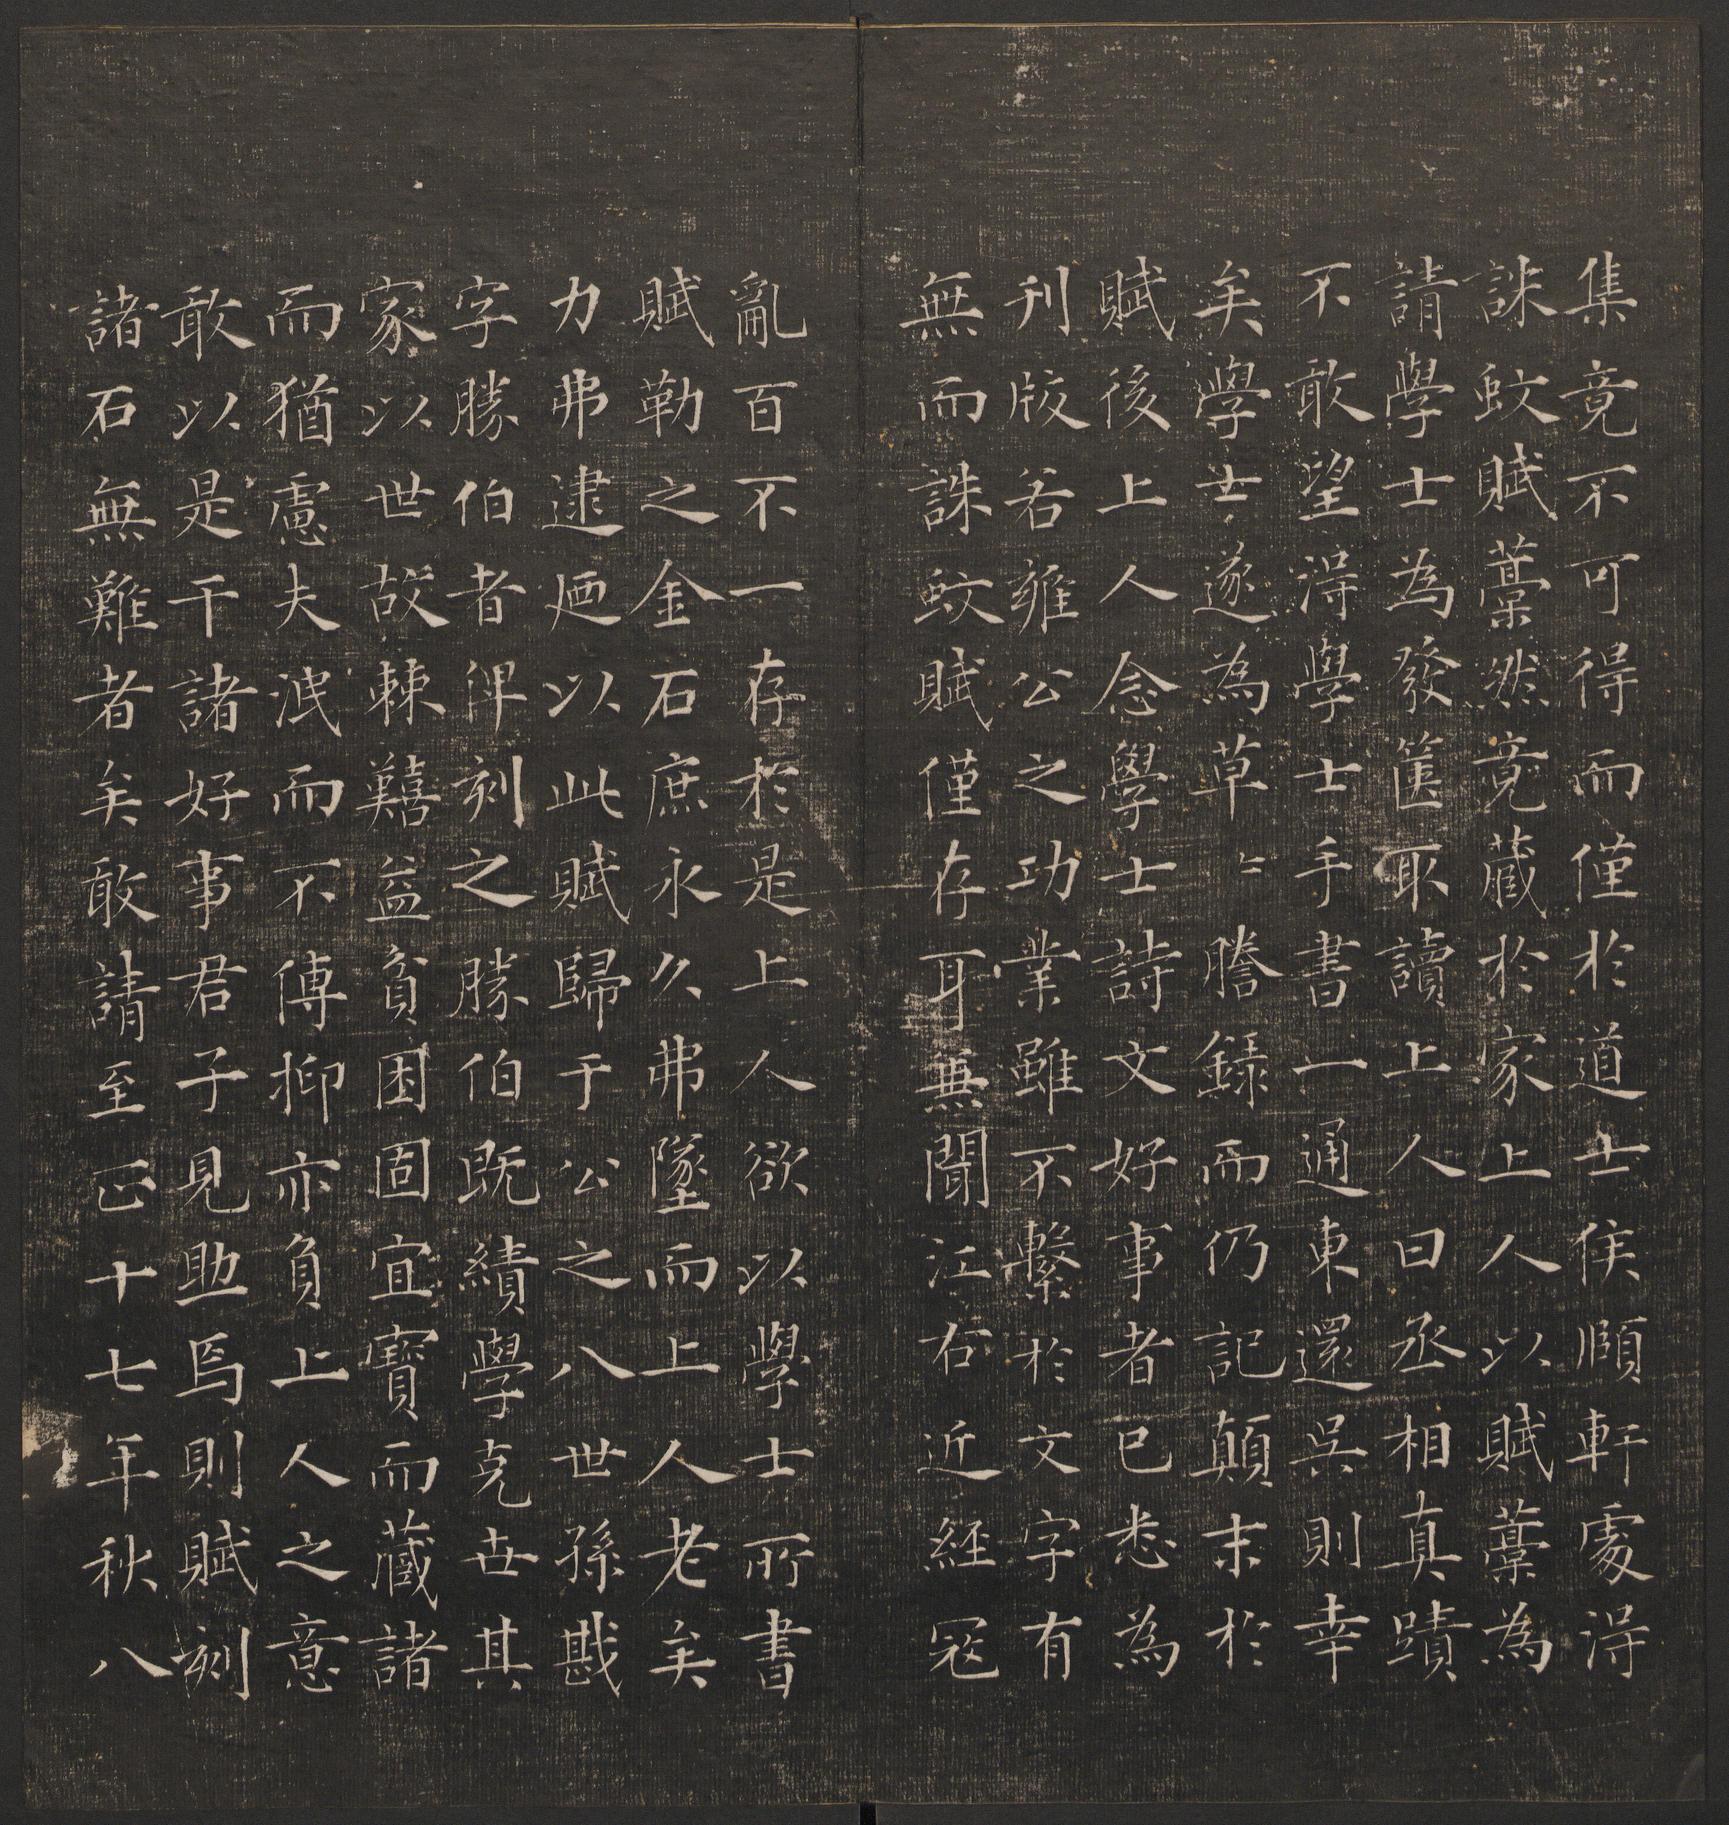 集竟不可得而僅於道士侯頤軒處得
誅蚊賦藁然竟藏於家上人以賦藁為
請學士為發篋取讀上人曰丞相真蹟
不敢望得學士手書一通東還吳則幸
矣學士遂為草〻謄錄而仍記顛末於
賦後上人念學士詩文好事者已悉為
刊版若雍公之功業雖不繫於文字有
無而誅蚊賦僅存耳無聞江右近經寇
亂百不一存於是上人欲以學士所書
賦勒之金石庶永久弗墜而上人老矣
力弗逮廼以此賦歸于公之八世孫戡
字勝伯者俾刻之勝伯既績學克世其
家以世故棘囏益貧困固宜寶而藏諸
而猶慮夫泯而不傳抑亦負上人之意
敢以是干諸好事君子見助焉則賦刻
諸石無難者矣敢請至正十七年秋八